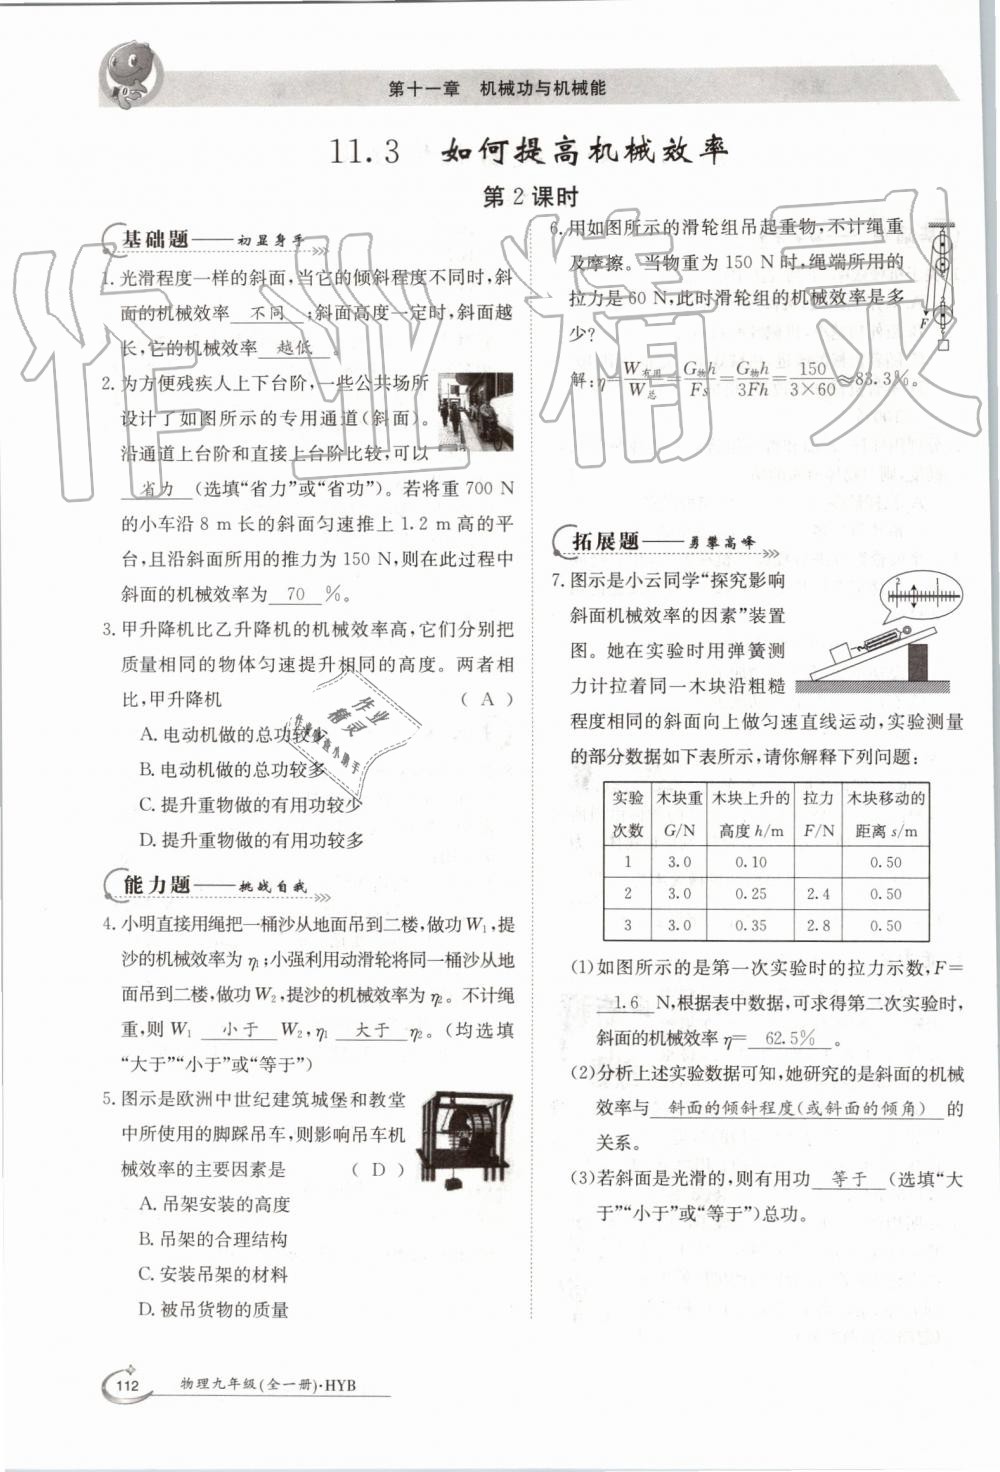 第十一章　机械功与机械能
11.3　如何提高机械效率
第2课时
基础题——初显身手
1.光滑程度一样的斜面,当它的倾斜程度不同时,斜
面的机械效率 不同 ;斜面高度一定时,斜面越
长,它的机械效率 越低 。
2.为方便残疾人上下台阶,一些公共场所
设计了如图所示的专用通道(斜面)。
沿通道上台阶和直接上台阶比较,可以
省力 (选填“省力”或“省功”)。若将重 700 N
的小车沿 8 m 长的斜面匀速推上 1.2 m 高的平
台,且沿斜面所用的推力为 150 N,则在此过程中
斜面的机械效率为 70 %。
3.甲升降机比乙升降机的机械效率高,它们分别把
质量相同的物体匀速提升相同的高度。两者相
比,甲升降机 ( A )
A.电动机做的总功较少
B.电动机做的总功较多
C.提升重物做的有用功较少
D.提升重物做的有用功较多
能力题——挑战自我
4.小明直接用绳把一桶沙从地面吊到二楼,做功W₁,提
沙的机械效率为 η₁;小强利用动滑轮将同一桶沙从地
面吊到二楼,做功W₂,提沙的机械效率为 η₂。不计绳
重,则 W₁ 小于 W₂,η₁ 大于 η₂。(均选填
“大于”“小于”或“等于”)
5.图示是欧洲中世纪建筑城堡和教堂
中所使用的脚踩吊车,则影响吊车机
械效率的主要因素是 ( D )
A.吊架安装的高度
B.吊架的合理结构
C.安装吊架的材料
D.被吊货物的质量
6.用如图所示的滑轮组吊起重物,不计绳重
及摩擦。当物重为 150 N 时,绳端所用的
拉力是 60 N,此时滑轮组的机械效率是多
少?
F
解:η=W有用/W总=G物h/Fs=G物h/3Fh=150/3×60≈83.3%。
拓展题——勇攀高峰
7.图示是小云同学“探究影响
斜面机械效率的因素”装置
图。她在实验时用弹簧测
力计拉着同一木块沿粗糙
程度相同的斜面向上做匀速直线运动,实验测量
的部分数据如下表所示,请你解释下列问题:
2 1
实验次数 木块重G/N 木块上升的高度 h/m 拉力F/N 木块移动的距离 s/m
1 3.0 0.10 0.50
2 3.0 0.25 2.4 0.50
3 3.0 0.35 2.8 0.50
(1)如图所示的是第一次实验时的拉力示数,F=
1.6 N,根据表中数据,可求得第二次实验时,
斜面的机械效率 η= 62.5% 。
(2)分析上述实验数据可知,她研究的是斜面的机械
效率与 斜面的倾斜程度(或斜面的倾角) 的
关系。
(3)若斜面是光滑的,则有用功 等于 (选填“大
于”“小于”或“等于”)总功。
作业精灵
作业
精灵
112 物理九年级(全一册)·HYB